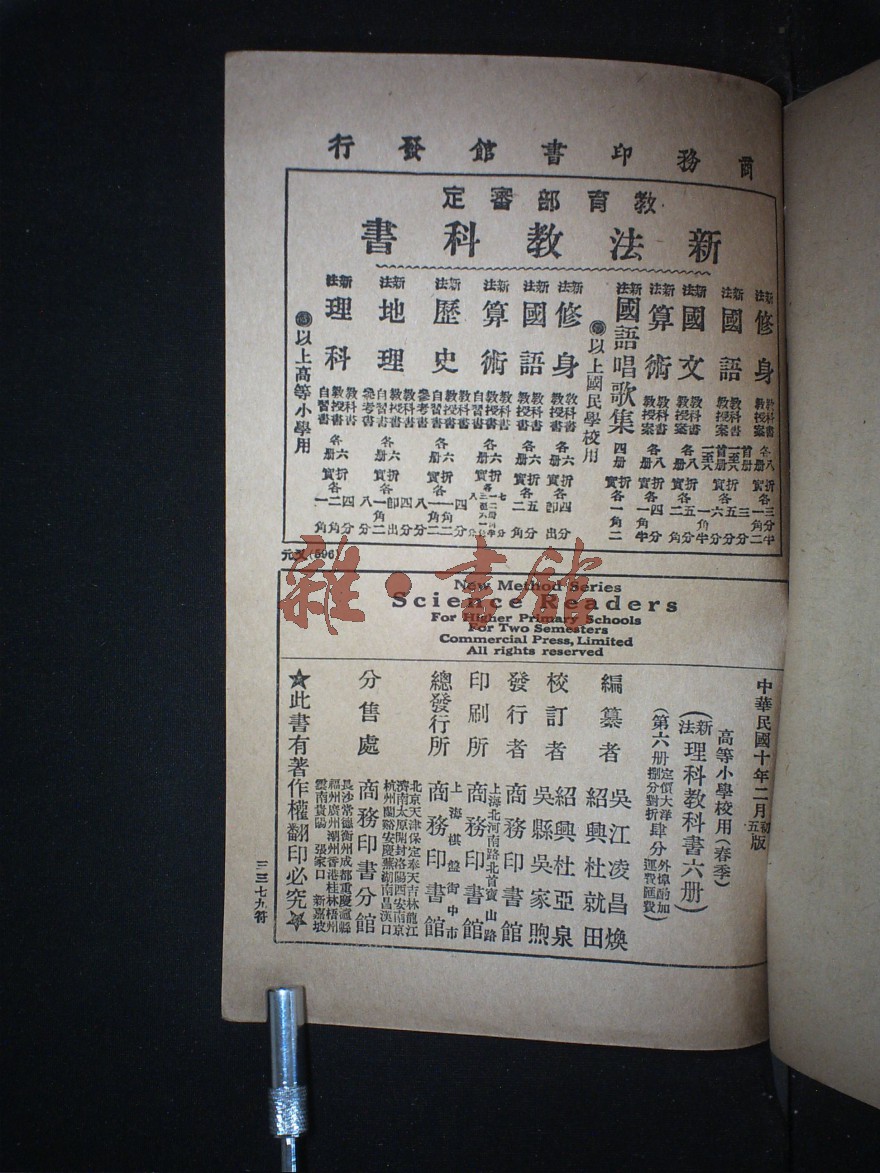 商務印書館發行
教育部審定
新法教科書
新法 修身 教科書 教授案
新法 國語 教科書 教授案
新法 國文 教科書 教授案
新法 算術 教授案
新法 國語唱歌集 四册
以上國民學校用
新法 修身 教科書 教授書 各六册
新法 國語 教科書 教授書 各六册
新法 算術 教科書 教授書 自習書 各六册
新法 歷史 教科書 教授書 自習書 參考書 各六册
新法 地理 教科書 教授書 自習書 參考書 各六册
新法 理科 教科書 教授書 自習書 各六册
以上高等小學用
元又(596)
雜·書館
New Method Series
Science Readers
For Higher Primary Schools
For Two Semesters
Commercial Press, Limited
All rights reserved
中華民國十年二月初五版
高等小學校用(春季)
(新法理科教科書六册)
(第六册定價大洋肆分 捌分對折 外埠酌加運費匯費)
編纂者 吳江凌昌煥 紹興杜就田
校訂者 紹興杜亞泉 吳縣吳家煦
發行者 商務印書館
印刷所 上海北河南路北首寶山路 商務印書館
總發行所 上海棋盤街中市 商務印書館
分售處 商務印書分館
北京天津保定奉天吉林龍江
濟南太原開封洛陽西安南京
杭州蘭谿安慶蕪湖南昌漢口
長沙常德衡州成都重慶瀘縣
福州廣州潮州香港桂林梧州
雲南貴陽 張家口 新嘉坡
★此書有著作權翻印必究★
三三七九符